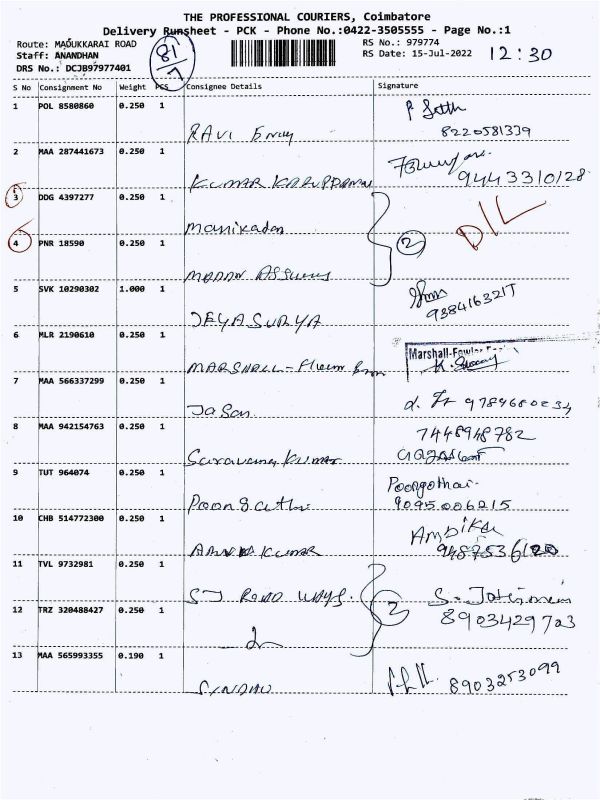 THE PROFESSIONAL COURIERS, Coimbatore
Delivery Runsheet - PCK - Phone No.:0422-3505555 - Page No.:1
Route: MADUKKARAI ROAD
Staff: ANANDHAN
DRS No.: DCJB97977401
RS No.: 979774
RS Date: 15-Jul-2022
12:30
S No Consignment No Weight PCS Consignee Details Signature
1 POL 8580860 0.250 1
RAVI 8220581339
2 MAA 287441673 0.250 1
KUMAR 9443310128
3 DDG 4397277 0.250 1
Manikadan
4 PNR 18590 0.250 1
2 D/L
MADAN
5 SVK 10290302 1.000 1
JEYASURYA
6 MLR 2190610 0.250 1
Marshall-Fowler
MARSHALL-
7 MAA 566337299 0.250 1
Jason
8 MAA 942154763 0.250 1
7448948782
Saravana Kumar
9 TUT 964074 0.250 1
Poongothai
9095006215
10 CHB 514772300 0.250 1
Ambika
KUMAR
11 TVL 9732981 0.250 1
ST ROAD WAYS.
12 TRZ 320488427 0.250 1
2
8903429723
13 MAA 565993355 0.190 1
8903253099
SINDHU